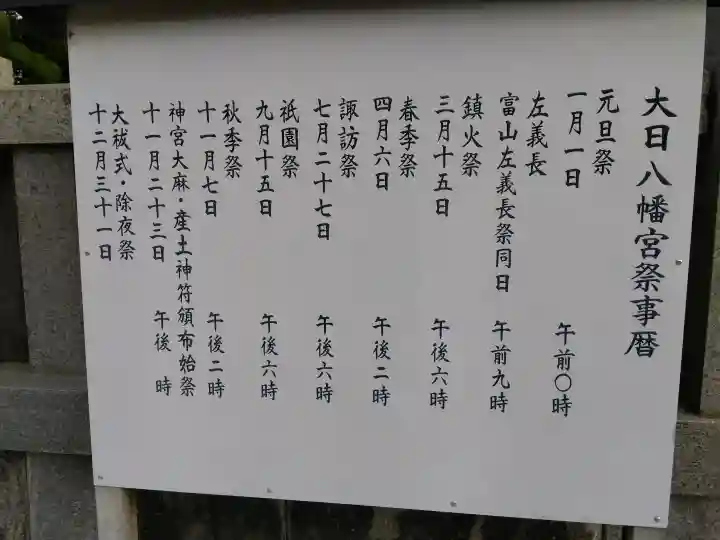 大日八幡宮祭事暦
元旦祭
一月一日 午前〇時
左義長
富山左義長祭同日 午前九時
鎮火祭
三月十五日 午後六時
春季祭
四月六日 午後二時
諏訪祭
七月二十七日 午後六時
祇園祭
九月十五日 午後六時
秋季祭
十一月七日 午後二時
神宮大麻・産土神符頒布始祭
十一月二十三日 午後 時
大祓式・除夜祭
十二月三十一日